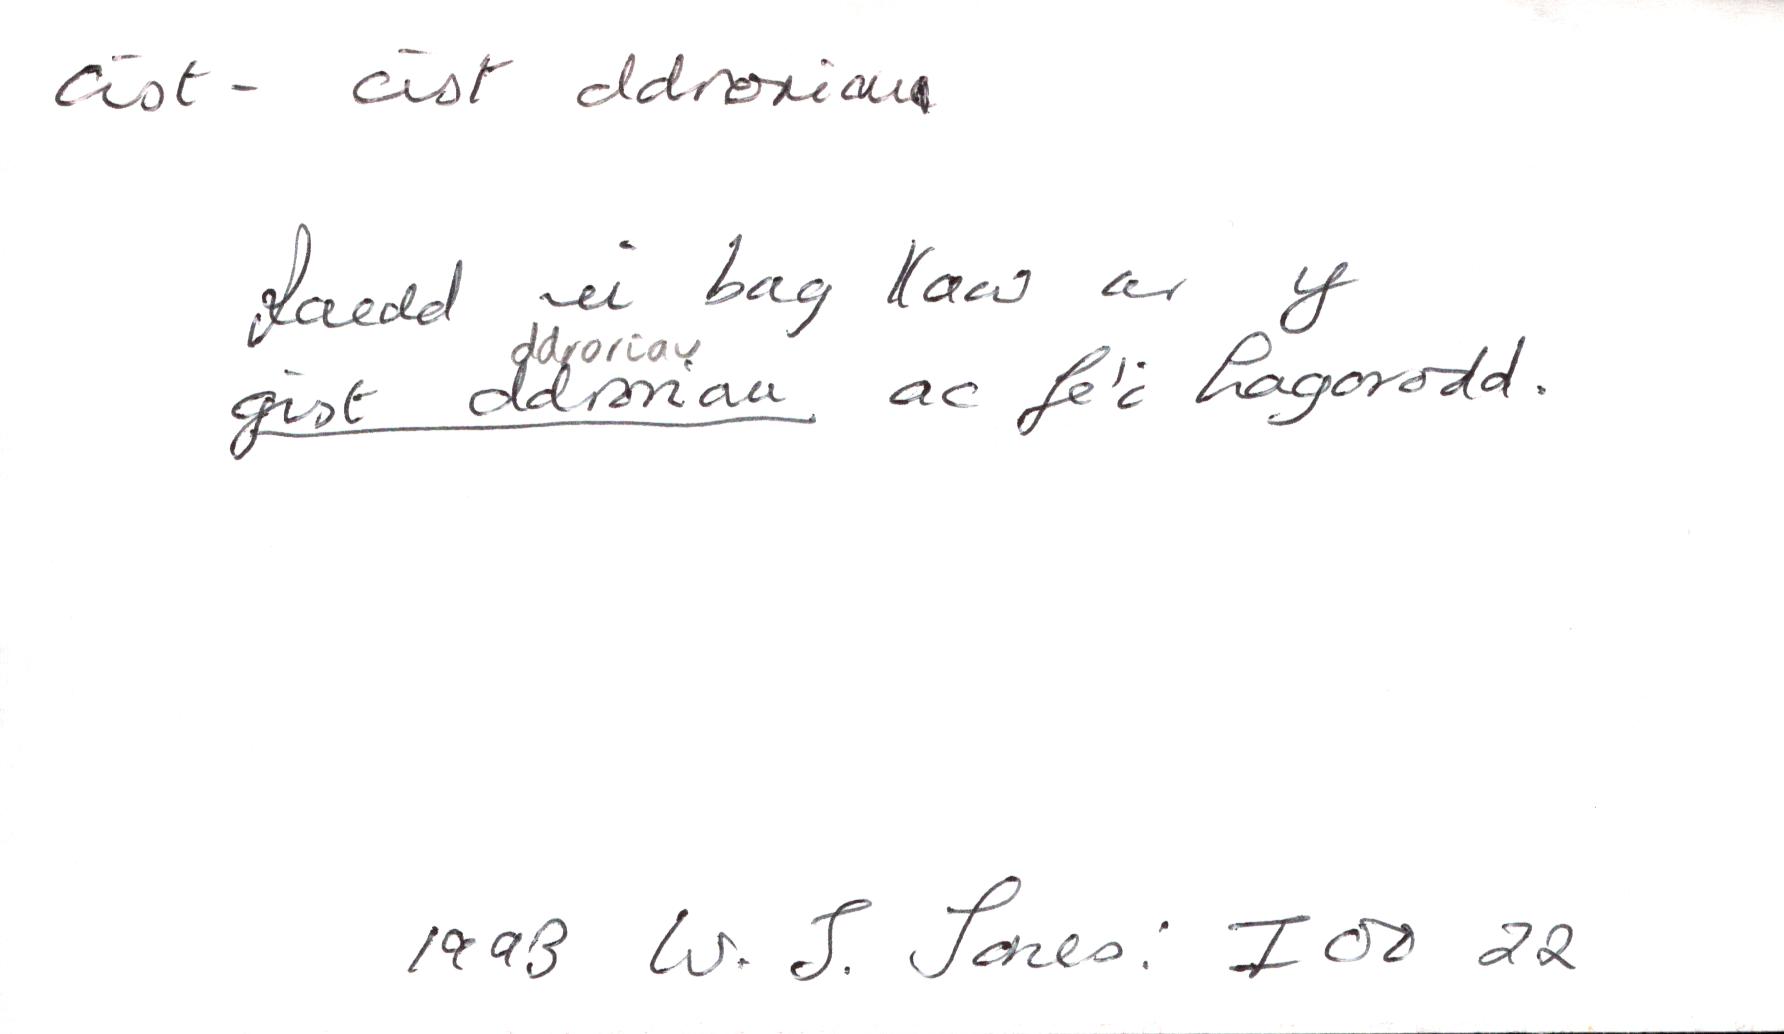 cist - cist ddroriau
Roedd ei bag llaw ar y
ddroriau
gist ddroriau ac fe'i hagorodd.
1993 W. J. Jones: I OO 22